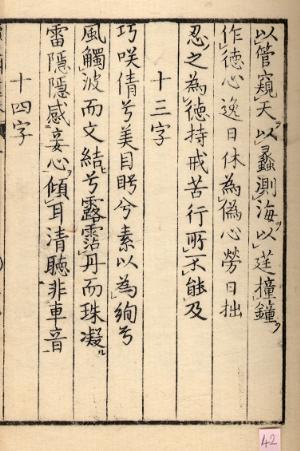 以管窺天以蠡測海以莛撞鐘
作德心逸日休為偽心勞日拙
忍之為德持戒苦行所不能及
十三字
巧咲倩兮美目盻兮素以為絢兮
風觸波而文結兮露霑丹而珠凝
雷隠隠感妾心傾耳清聴非車音
十四字
42